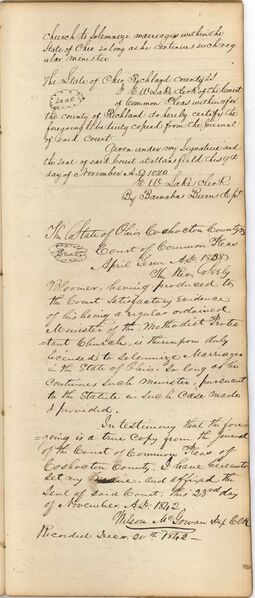 church to solemnize marriages within the
State of Ohio so long as he continues such reg
ular minister
The State of Ohio Richland county ss
seal I E W Lake clerk of the Court
of Common Pleas within & for
the county of Richland do hereby certify the
foregoing to be truly copied from the Journal
of said Court
Given under my signature and
the seal of said Court at Mansfield this
day of November A.D.
E W Lake Clerk
By Barnabas Burns
The State of Ohio Coshocton County ss
Seal Court of Common Pleas
April Term A.D.
The Rev.
having produced to
the Court Satisfactory Evidence
of his being a regular ordained
Minister of the Methodist Protes
tant Church, is thereupon duly
licensed to Solemnize Marriages
in the State of Ohio. So long as he
Continues Such Minister, pursuant
to the Statute in Such Case made
& provided.
In testimony that the fore
=going is a true Copy from the Journal
of the Court of Common Pleas of
Coshocton County, I have hereunto
Set my and affixed the
Seal of said Court, this 23rd day
of November A.D. 1842
Wilson McGowan Dep Clk
Recorded Decem 20th 1842